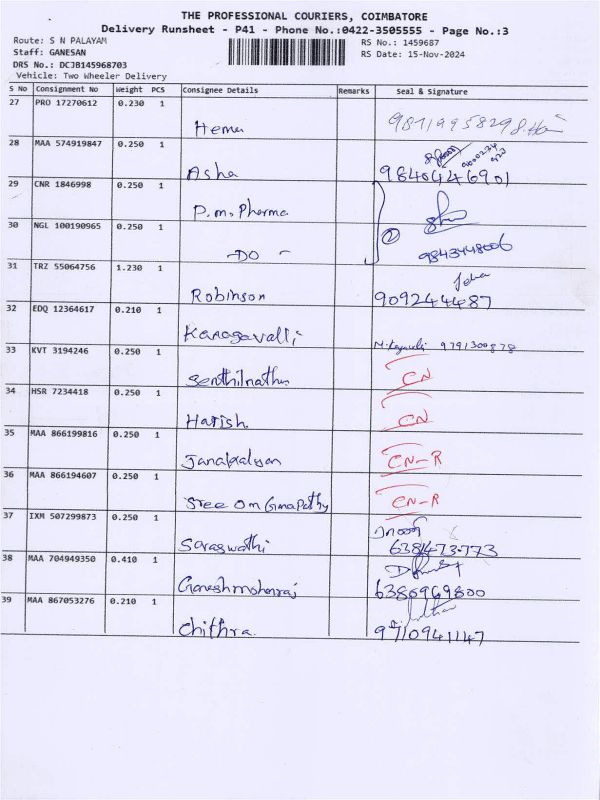 THE PROFESSIONAL COURIERS, COIMBATORE
Delivery Runsheet - P41 - Phone No.:0422-3505555 - Page No.:3
Route: S N PALAYAM
RS No.: 1459687
Staff: GANESAN
RS Date: 15-Nov-2024
DRS No.: DCJB145968703
Vehicle: Two Wheeler Delivery
S No Consignment No Weight PCS Consignee Details Remarks Seal & Signature
27 PRO 17270612 0.230 1 Hema
28 MAA 574919847 0.250 1 Asha 9840446901
29 CNR 1846998 0.250 1 P.m. Pharma
30 NGL 100190965 0.250 1 -DO- 2 9843448006
31 TRZ 55064756 1.230 1 Robinson 909244487
32 EDQ 12364617 0.210 1 Kanagavalli 9791300878
33 KVT 3194246 0.250 1 Senthilnathn CN
34 HSR 7234418 0.250 1 Harish CN
35 MAA 866199816 0.250 1 Janakalyan CN-R
36 MAA 866194607 0.250 1 Sree Om Ganapathy CN-R
37 IXM 507299873 0.250 1 Saraswathi
38 MAA 704949350 0.410 1 Ganeshmohanraj 6380969800
39 MAA 867053276 0.210 1 Chithra. 9710941147